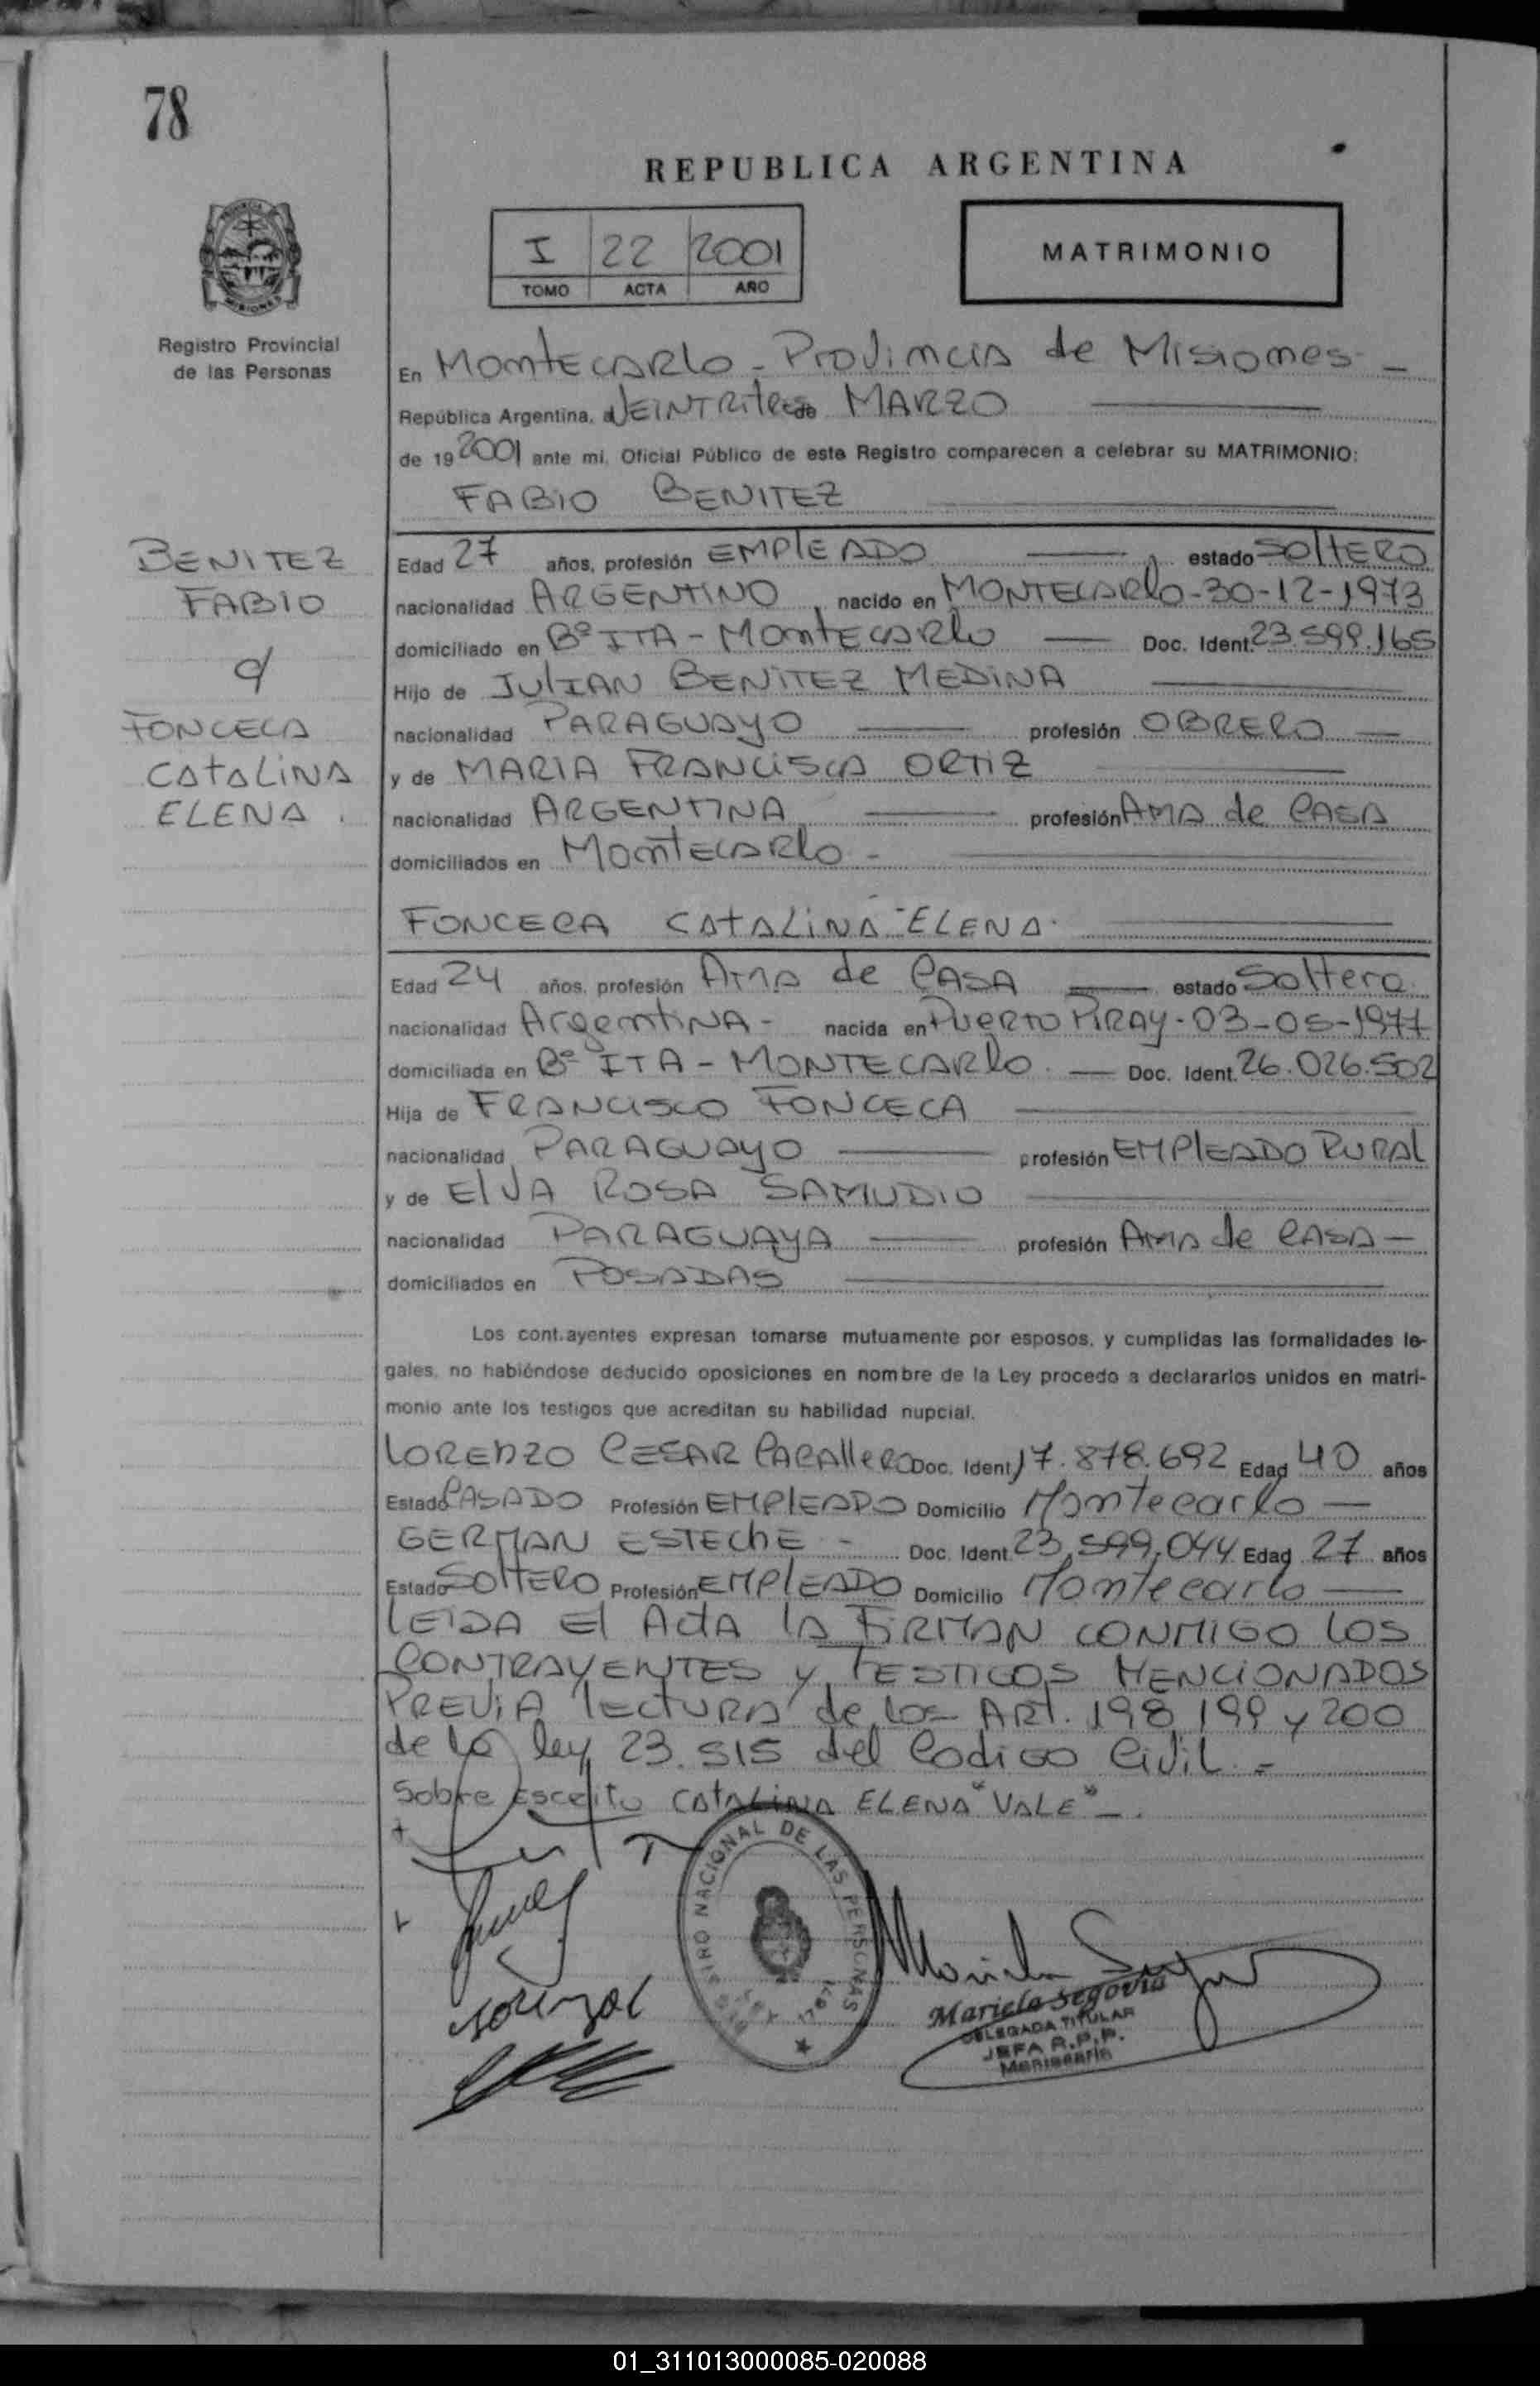 78
REPUBLICA ARGENTINA
I 22 2001
TOMO ACTA AÑO
MATRIMONIO
Registro Provincial
de las Personas
En MONTECARLO - PROVINCIA de MISIONES -
República Argentina, a VEINTRITRES de MARZO
de 19 2001 ante mí, Oficial Público de este Registro comparecen a celebrar su MATRIMONIO:
FABIO BENITEZ
BENITEZ
FABIO
c/
FONCECA
CATALINA
ELENA .
Edad 27 años, profesión EMPLEADO estado SOLTERO
nacionalidad ARGENTINO, nacido en MONTECARLO - 30-12-1973
domiciliado en Bº ITA - MONTECARLO Doc. Ident. 23.599.165
Hijo de JULIAN BENITEZ MEDINA
nacionalidad PARAGUAYO profesión OBRERO
y de MARIA FRANCISCA ORTIZ
nacionalidad ARGENTINA profesión AMA de CASA
domiciliados en MONTECARLO -
FONCECA CATALINA ELENA.
Edad 24 años, profesión AMA de CASA estado Soltera
nacionalidad ArgentINA - nacida en PUERTO PIRAY - 03-05-1977
domiciliada en Bº ITA - MONTECARLO. Doc. Ident. 26.026.502
Hija de FRANCISCO FONCECA
nacionalidad PARAGUAYO profesión EMPLEADO RURAL
y de ELVA ROSA SAMUDIO
nacionalidad PARAGUAYA profesión AMA de CASA -
domiciliados en POSADAS
Los cont.ayentes expresan tomarse mutuamente por esposos, y cumplidas las formalidades le-
gales, no habiéndose deducido oposiciones en nombre de la Ley procedo a declararlos unidos en matri-
monio ante los testigos que acreditan su habilidad nupcial.
LORENZO CESAR CABALLERO Doc. Ident. 17.878.692 Edad 40 años
Estado CASADO Profesión EMPLEADO Domicilio Montecarlo
GERMAN ESTECHE - Doc. Ident. 23.599.044 Edad 27 años
Estado SOLTERO Profesión EMPLEADO Domicilio Montecarlo
LEIDA El ActA lA FIRMAN CONMIGO LOS
CONTRAYENTES y TESTIGOS MENCIONADOS
PREVIA lECTURA de los ART. 198 199 y 200
de la ley 23.515 del Codigo Civil. -
Sobre Escrito CATALINA ELENA "VALE" -.
REGISTRO NACIONAL DE LAS PERSONAS
Mariela Segovia
DELEGADA TITULAR
JEFA R.P.P.
Montecarlo
01_311013000085-020088